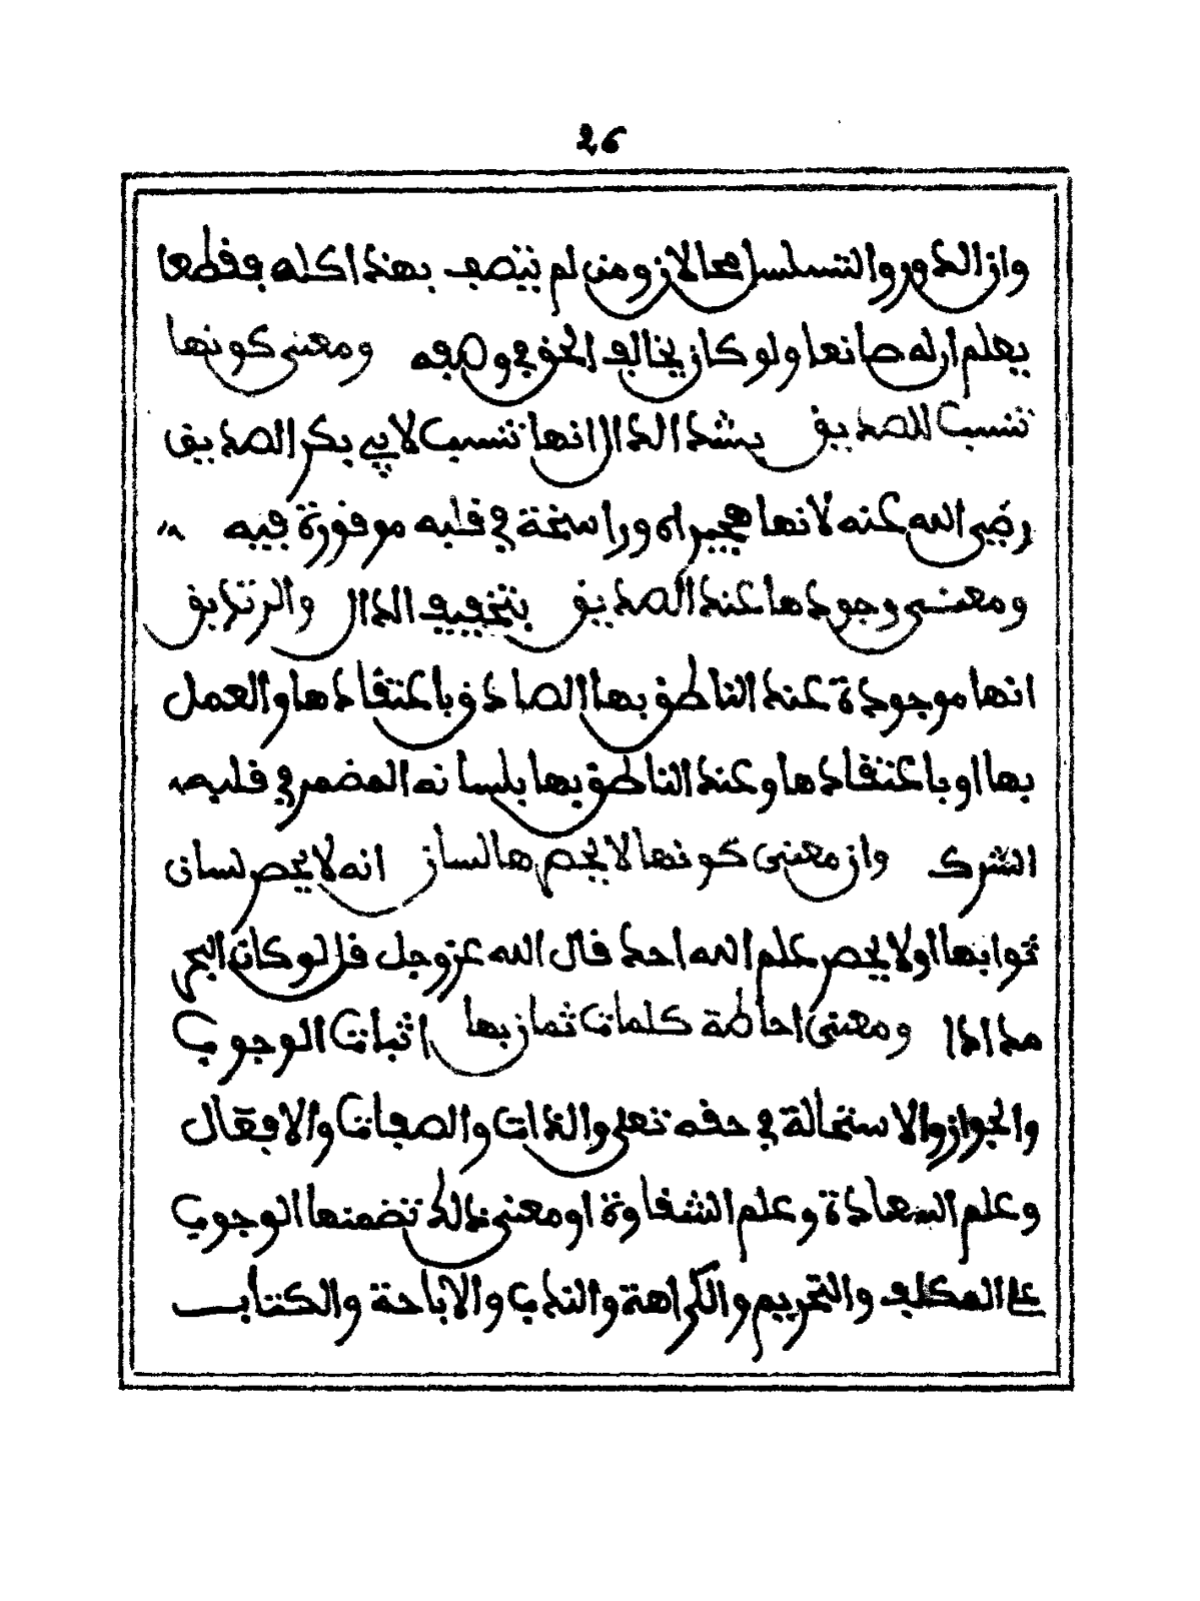 26
وان الدور والتسلسل محالان ومن لم يتصف بهذا كله فقطعا
يعلم ان له صانعا ولو كان يخالف الحق في وصفه ومعنى كونها
تنسب للصديق بشد الدال انها تنسب لابي بكر الصديق
رضي الله عنه لانها هجيراه وراسخة في قلبه موقورة فيه
ومعنى وجودها عند الصديق بتخفيف الدال والزنديق
انها موجودة عند الناطق بها الصادق باعتقادها والعمل
بها او باعتقادها وعند الناطق بها بلسانه المضمر في قلبه
الشرك وان معنى كونها لا يحصرها لسان انه لا يحصر لسان
ثوابها او لا يحصر علم الله احد قال الله عز وجل قل لو كان البحر
مدادا ومعنى احاطة كلمات ثمان بها اثبات الوجوب
والجواز والاستحالة في حقه تعلى والذات والصفات والافعال
وعلم السعادة وعلم الشقاوة او معنى ذلك تضمنها الوجوب
على المكلف والتحريم والكراهة والندب والاباحة والكتاب